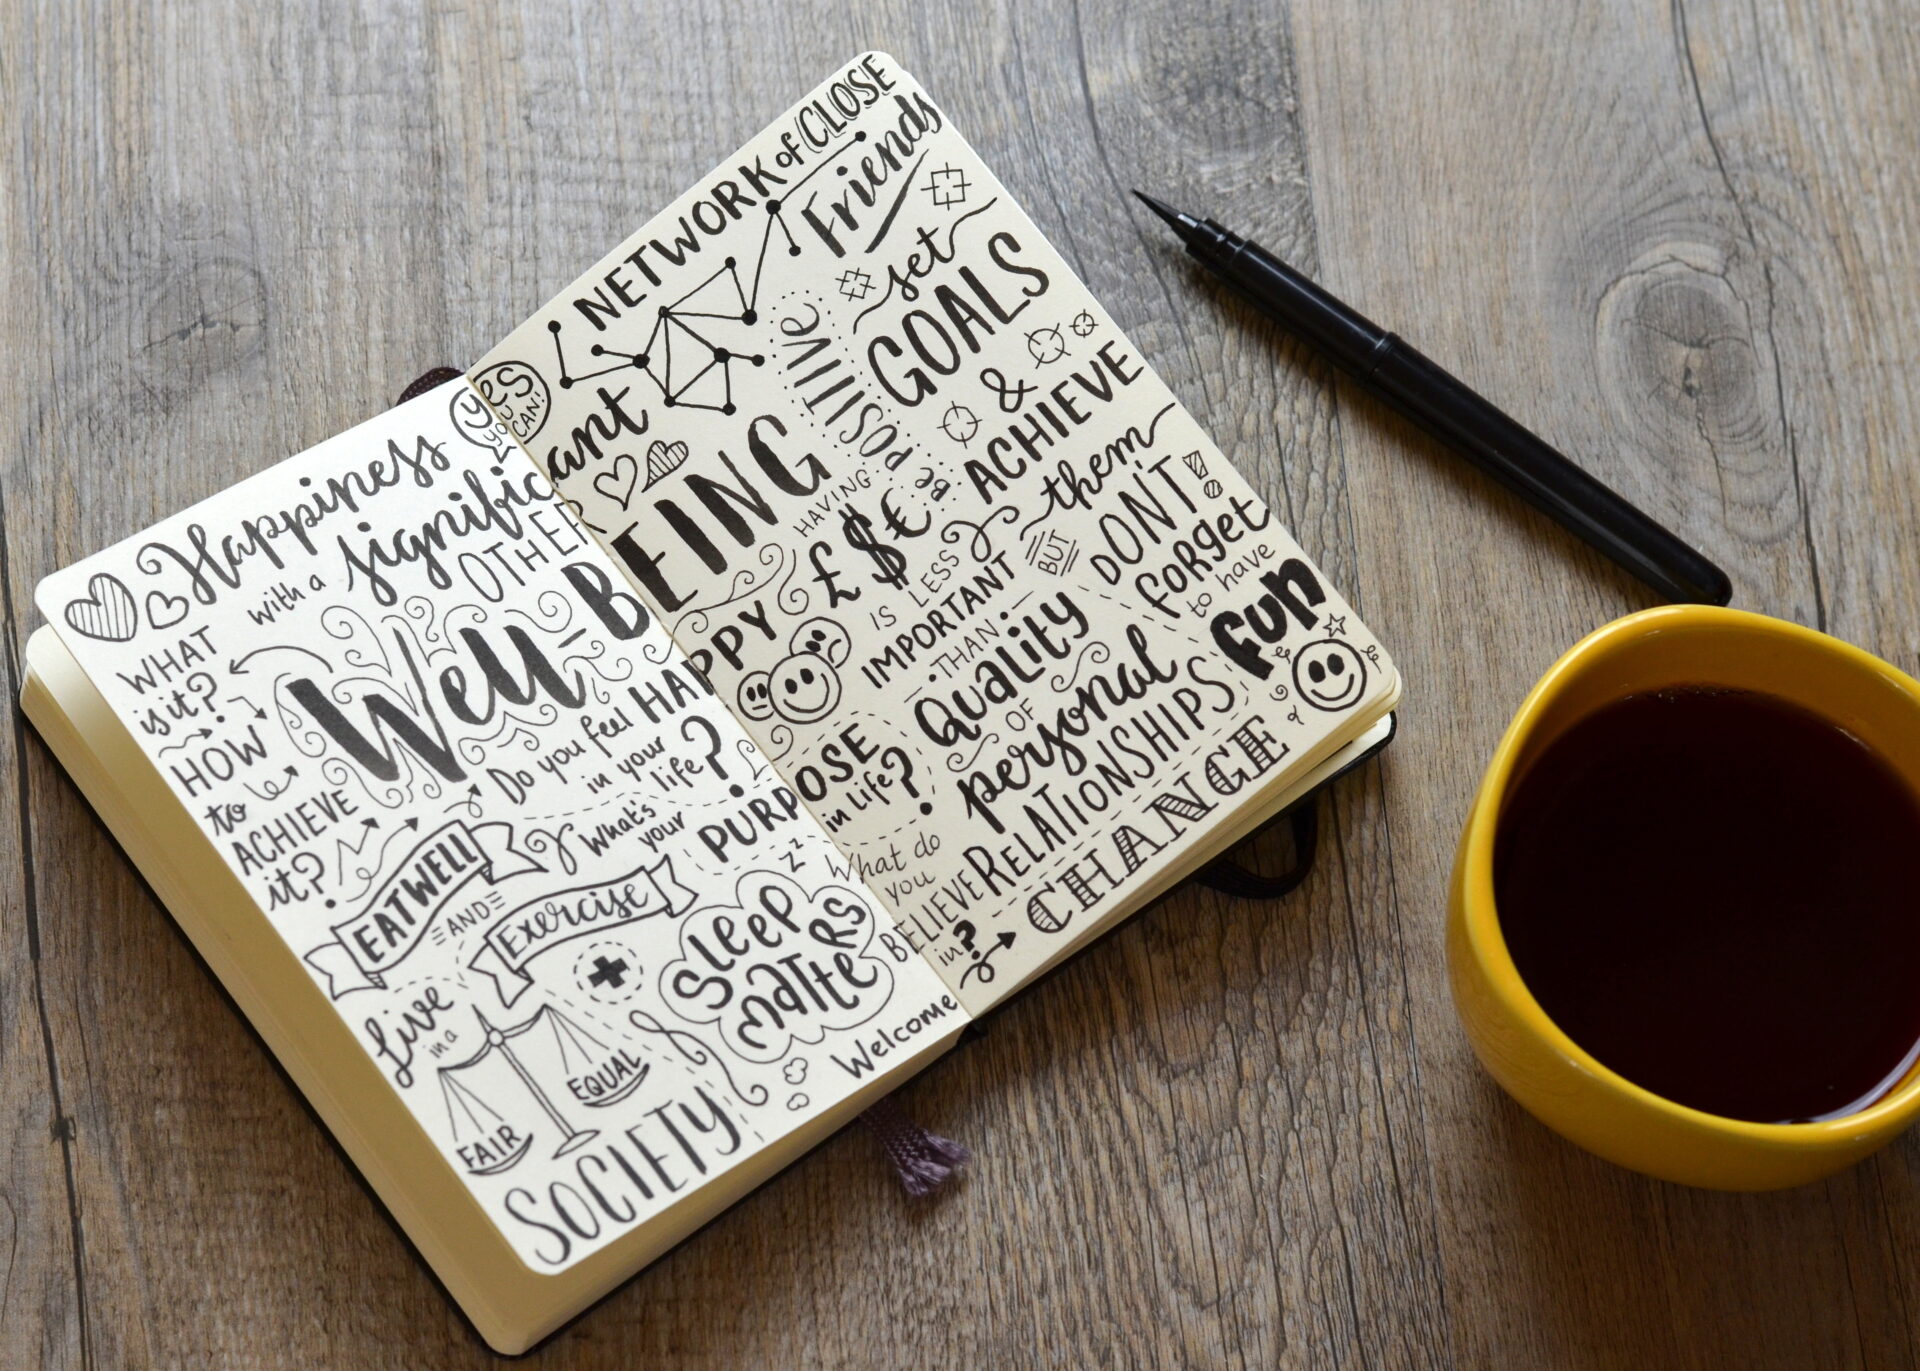 NETWORK of CLOSE
Friends
set
GOALS
&
ACHIEVE
them
Yes
YOU
CAN!
Happiness
with a significant
OTHER
BE POSITIVE
WHAT
is it?
HOW
to
ACHIEVE
it?
Well-BEING
HAVING
£ $ €
IS LESS
IMPORTANT
THAN
Quality
OF
personal
RELATIONSHIPS
BUT
DON'T!
forget
to have
fun
Do you feel HAPPY
in your
life?
What's
your PURPOSE
in life?
EATWELL
AND
Exercise
zzz
SLeep
maTTeRS
What do
you
BELIEVE
in?
Welcome
CHANGE
Live
in a
FAIR
EQUAL
SOCIETY